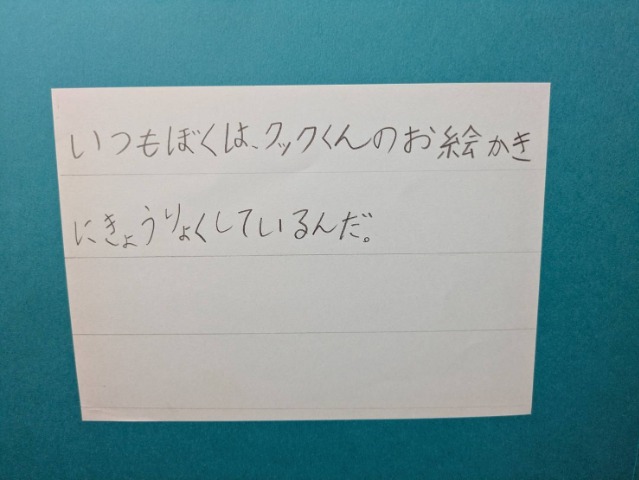 いつもぼくは、クックくんのお絵かき
にきょうりょくしているんだ。